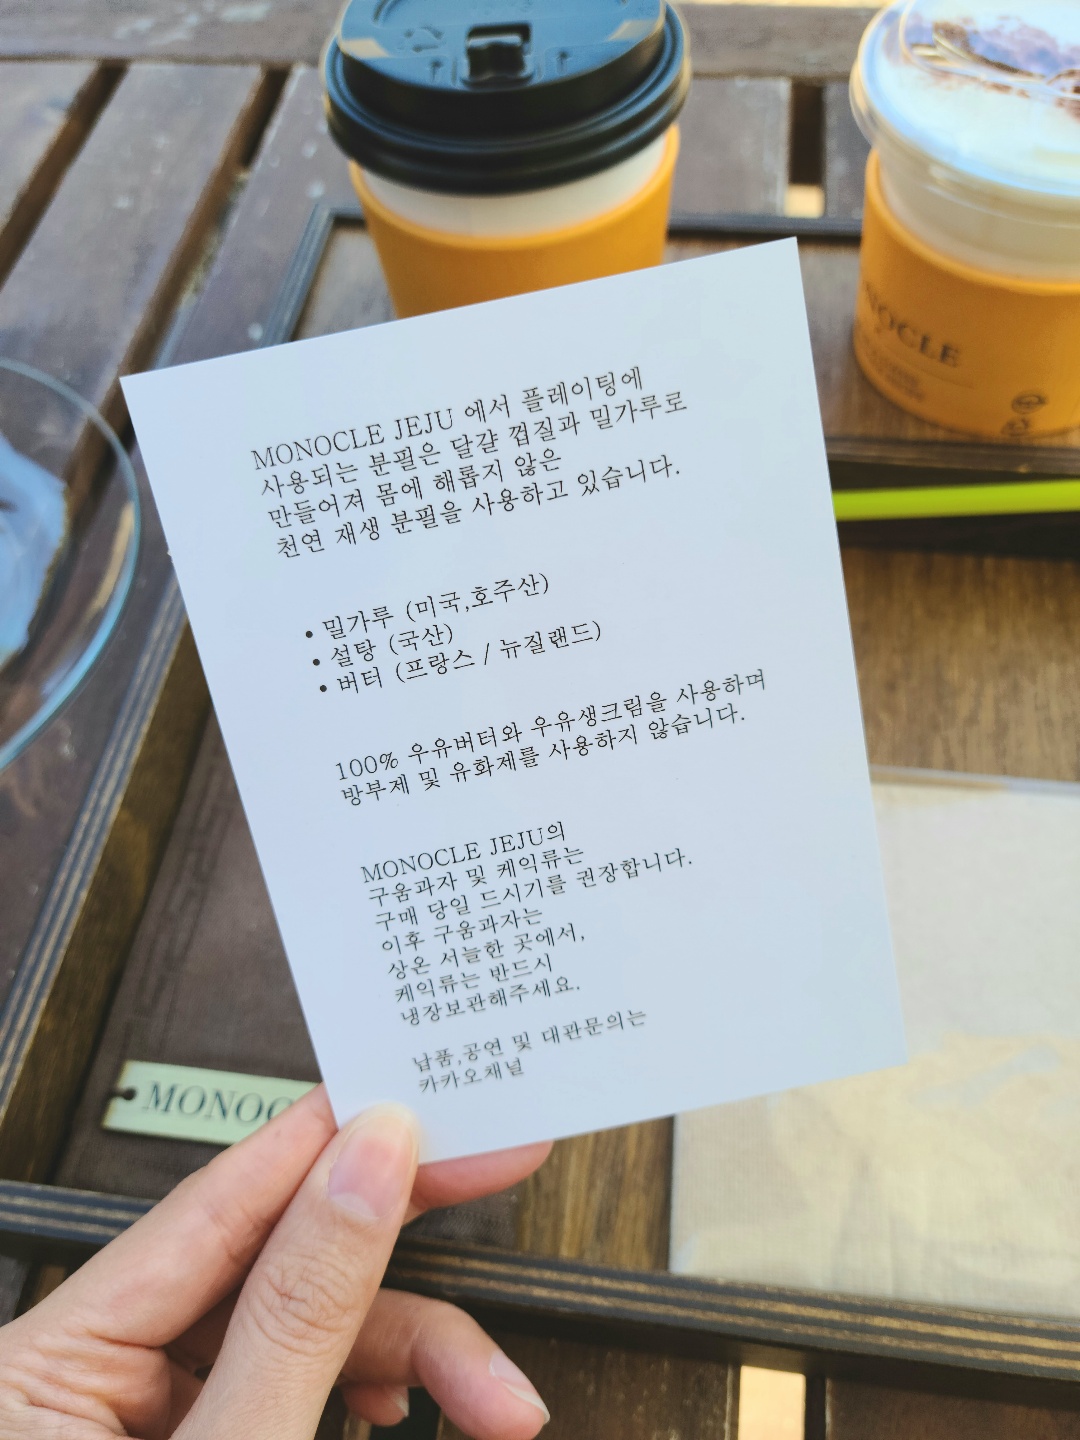 NOCLE
MONOCLE JEJU 에서 플레이팅에
사용되는 분필은 달걀 껍질과 밀가루로
만들어져 몸에 해롭지 않은
천연 재생 분필을 사용하고 있습니다.
• 밀가루 (미국,호주산)
• 설탕 (국산)
• 버터 (프랑스 / 뉴질랜드)
100% 우유버터와 우유생크림을 사용하며
방부제 및 유화제를 사용하지 않습니다.
MONOCLE JEJU의
구움과자 및 케익류는
구매 당일 드시기를 권장합니다.
이후 구움과자는
상온 서늘한 곳에서,
케익류는 반드시
냉장보관해주세요.
납품,공연 및 대관문의는
카카오채널
MONOC